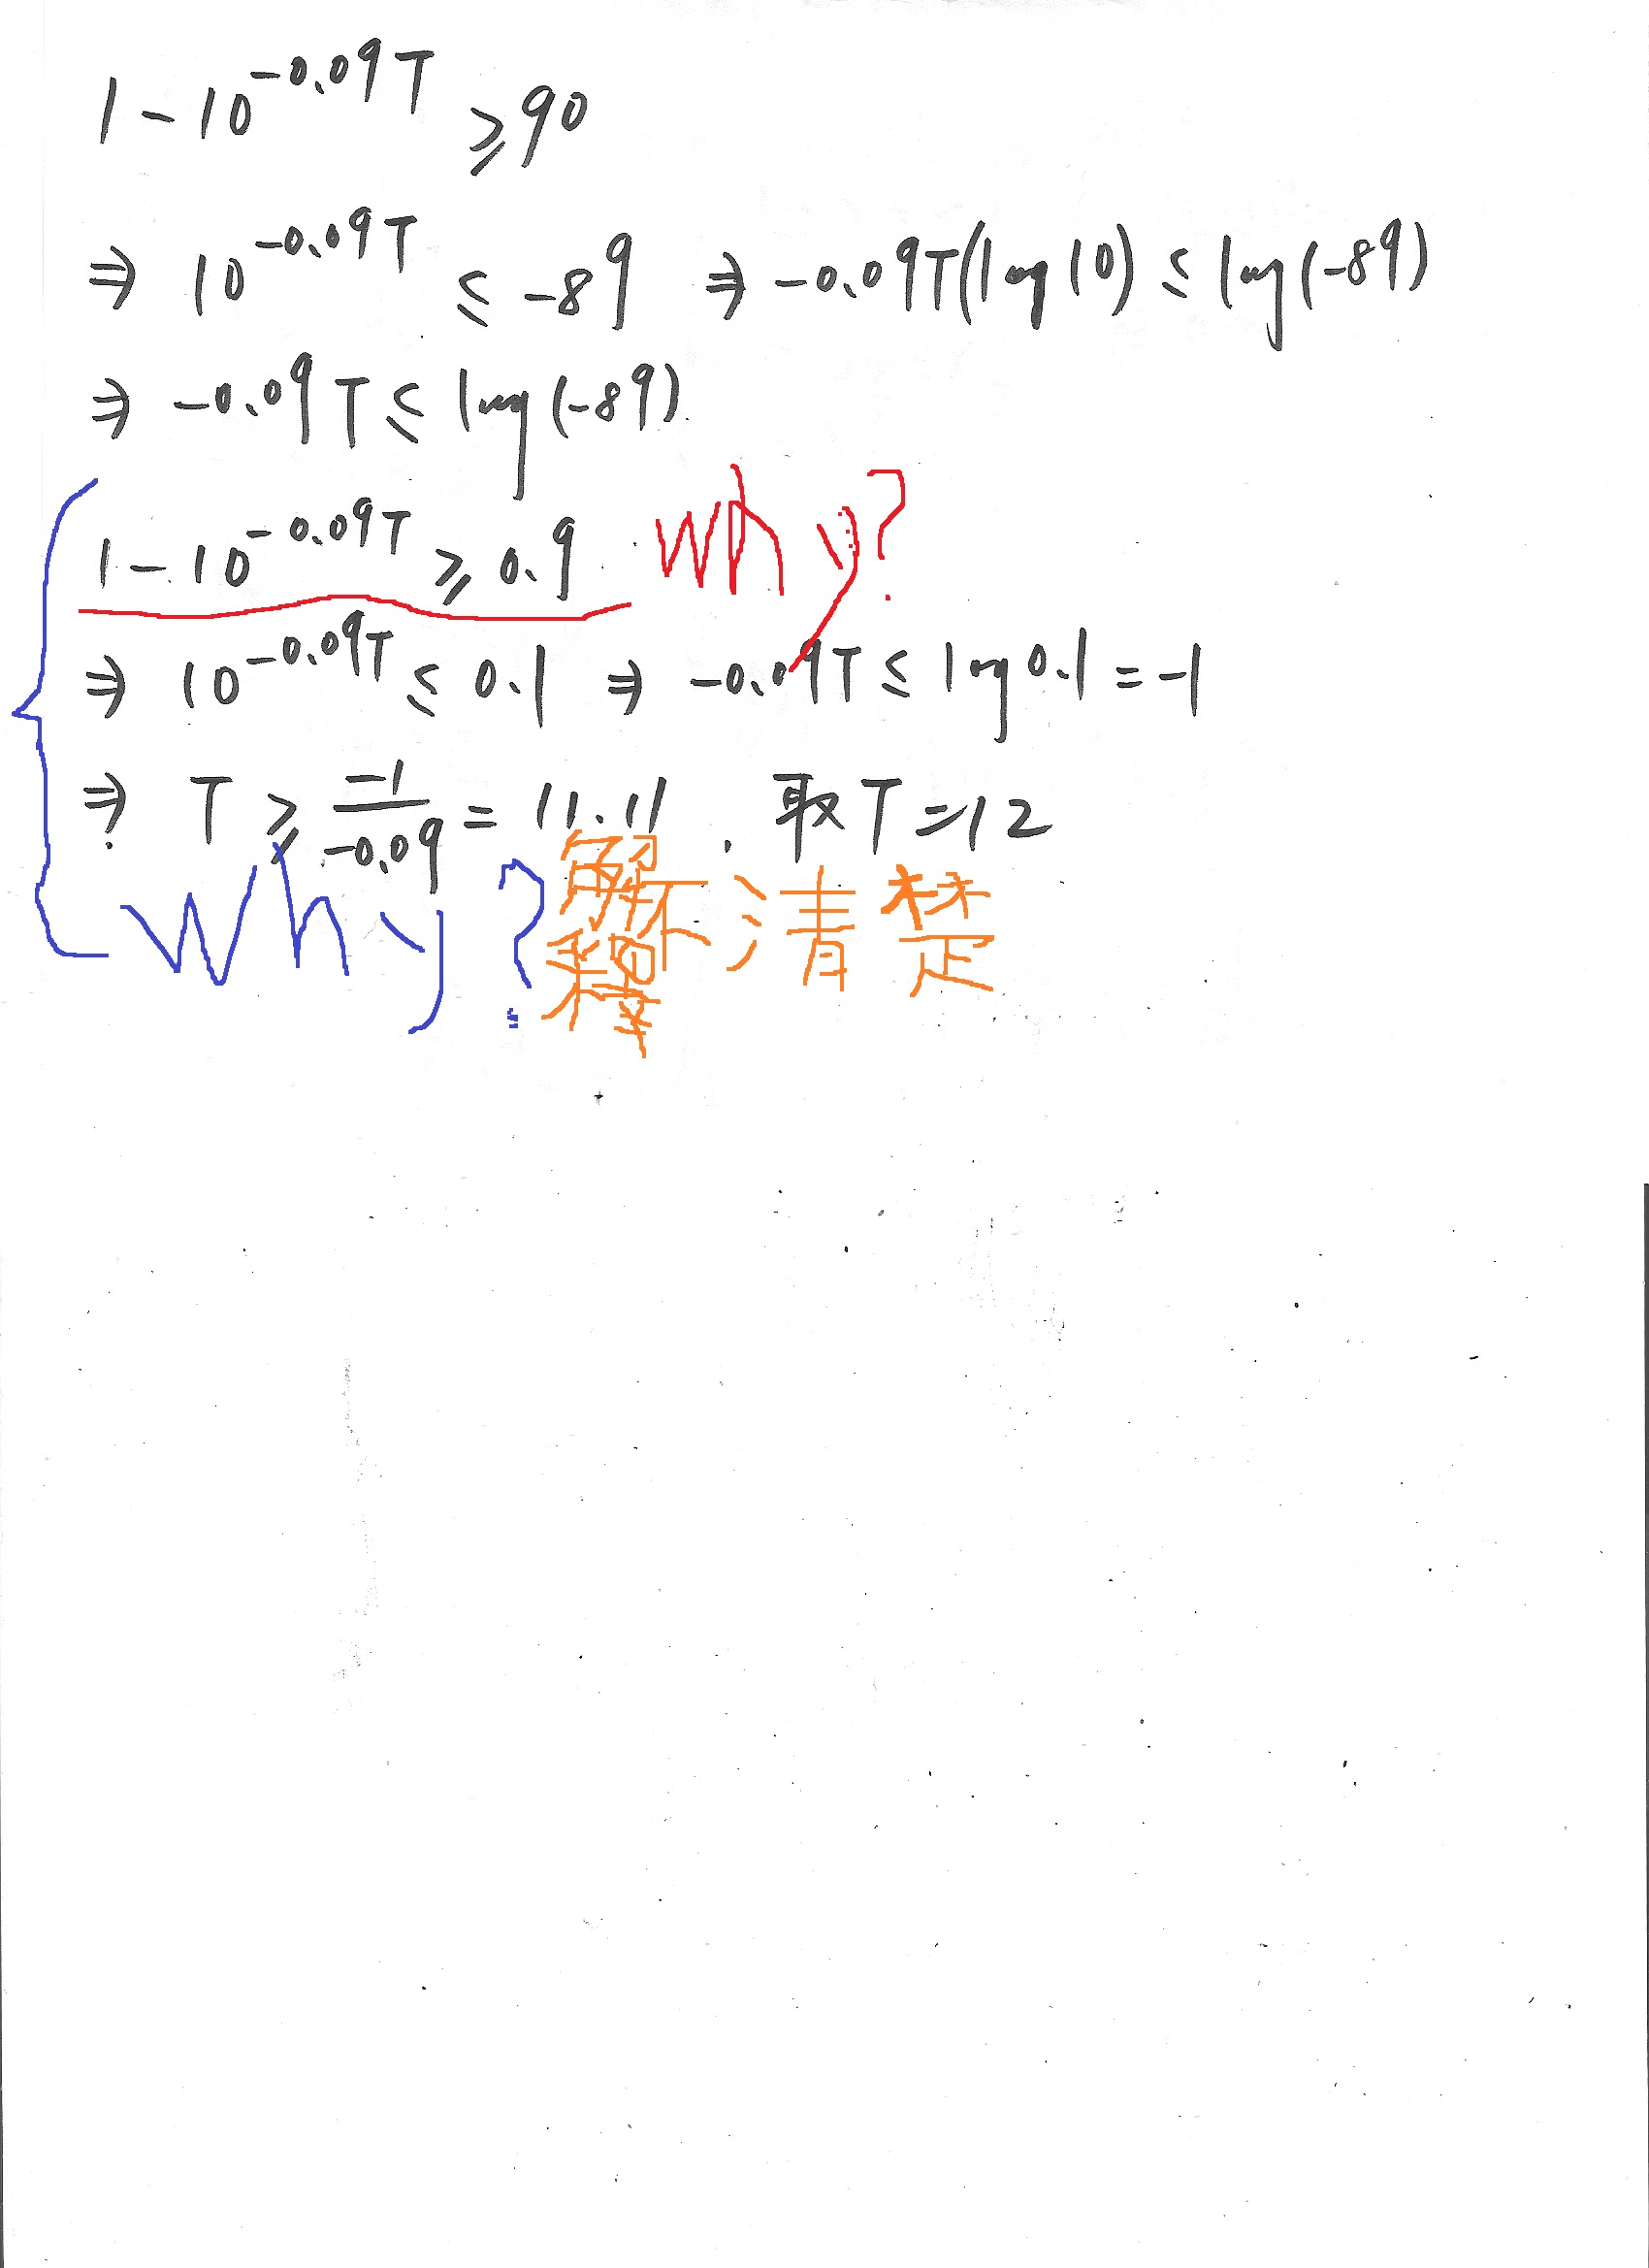 1-10^{-0.09T} ≥ 90
⇒ 10^{-0.09T} ≤ -89 ⇒ -0.09T(log10) ≤ log(-89)
⇒ -0.09T ≤ log(-89)
1-10^{-0.09T} ≥ 0.9 Why?
⇒ 10^{-0.09T} ≤ 0.1 ⇒ -0.09T ≤ log0.1 = -1
⇒ T ≥ \frac{-1}{-0.09} = 11.11. 取T=12
Why? 解釋不清楚